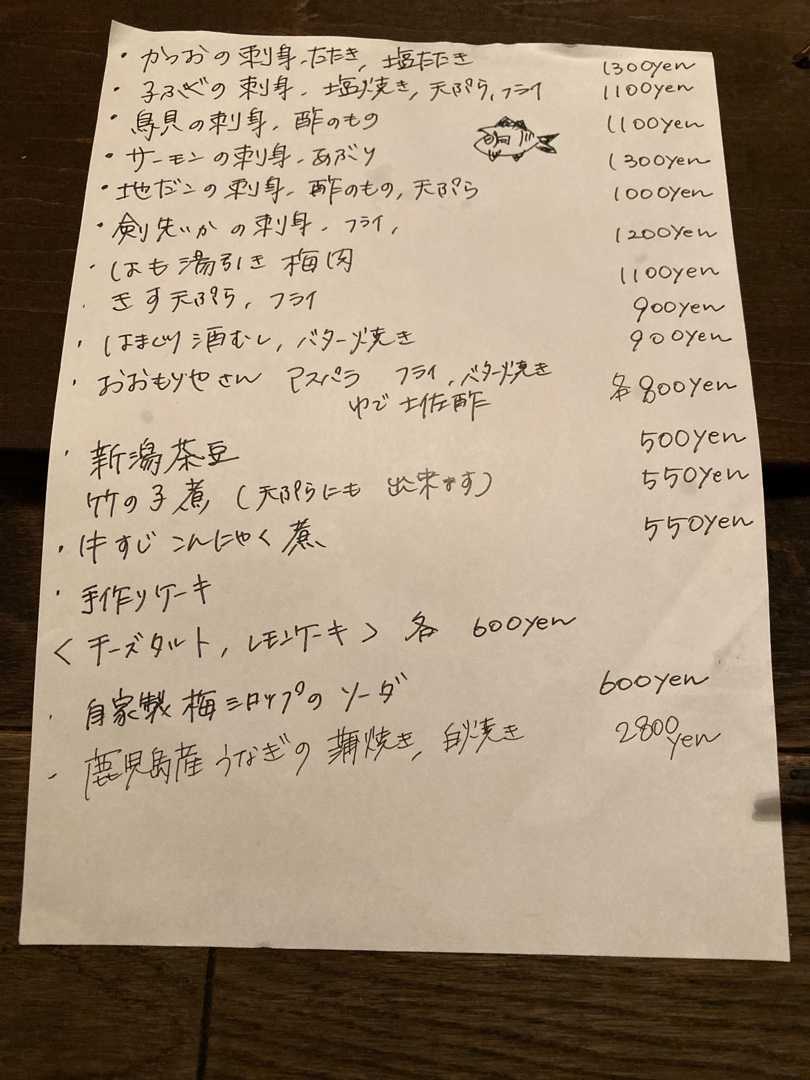 ・かつおの刺身、たたき, 塩たたき 1300yen
・子ふぐの刺身、塩焼き, 天ぷら, フライ 1100yen
・鳥貝の刺身、酢のもの 1100yen
・サーモンの刺身、あぶり 1300yen
・地だこの刺身、酢のもの, 天ぷら 1000yen
・剣先いかの刺身、フライ, 1200yen
・はも湯引き 梅肉 1100yen
・きす天ぷら, フライ 900yen
・はまぐり酒むし, バター焼き 900yen
・おおもりやさん アスパラ フライ, バター焼き 各800yen
ゆで 土佐酢
・新潟茶豆 500yen
竹の子煮 (天ぷらにも 出来ます) 550yen
・牛すじ こんにゃく煮 550yen
・手作りケーキ
〈チーズタルト, レモンケーキ〉 各 600yen
・自家製 梅シロップの ソーダ 600yen
・鹿児島産 うなぎの 蒲焼き, 白焼き 2800yen